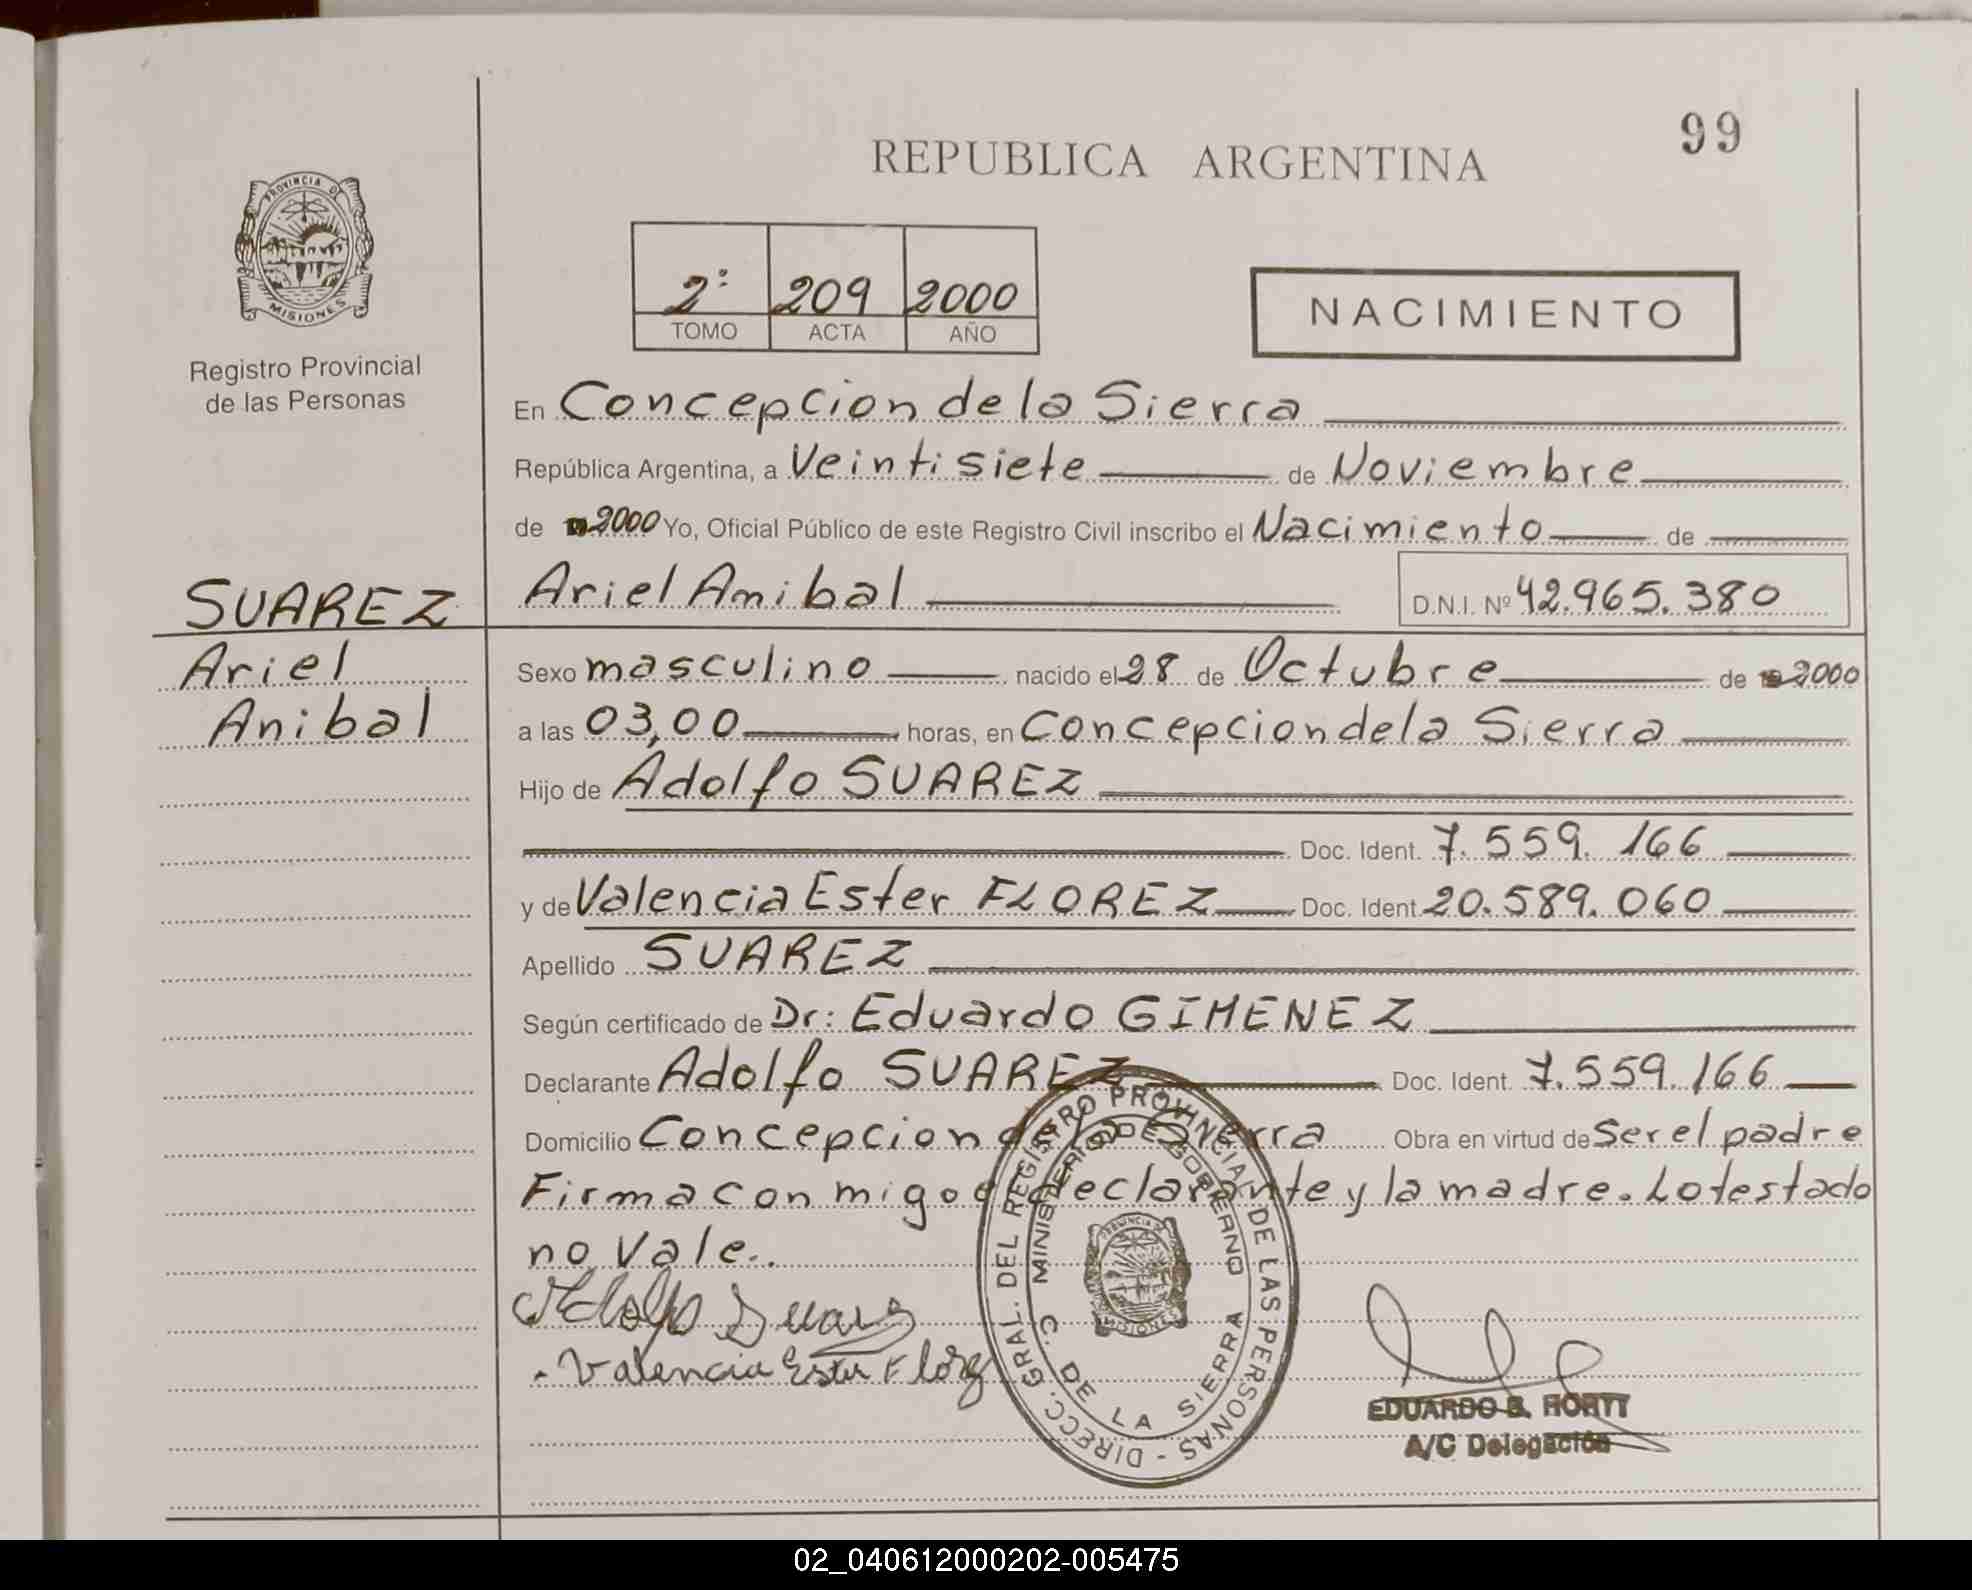 99
REPUBLICA ARGENTINA
PROVINCIA DE
MISIONES
Registro Provincial
de las Personas
2º 209 2000
TOMO ACTA AÑO
NACIMIENTO
En Concepcion de la Sierra
República Argentina, a Veintisiete de Noviembre
de 2000 Yo, Oficial Público de este Registro Civil inscribo el Nacimiento de
SUAREZ
Ariel
Anibal
Ariel Anibal D.N.I. Nº 42.965.380
Sexo masculino nacido el 28 de Octubre de 2000
a las 03,00 horas, en Concepcion de la Sierra
Hijo de Adolfo SUAREZ
Doc. Ident. 7.559.166
y de Valencia Ester FLOREZ Doc. Ident. 20.589.060
Apellido SUAREZ
Según certificado de Dr: Eduardo GIMENEZ
Declarante Adolfo SUAREZ Doc. Ident. 7.559.166
Domicilio Concepcion de la Sierra Obra en virtud de Ser el padre
Firma con migo el declarante y la madre. Lo testado
no vale..
Adolfo Suarez
Valencia Ester Florez
DIRECC. GRAL. DEL REGISTRO PROVINCIAL DE LAS PERSONAS -
MINISTERIO DE GOBIERNO
C. DE LA SIERRA
PROVINCIA DE
MISIONES
EDUARDO B. HORTT
A/C Delegación
02_040612000202-005475